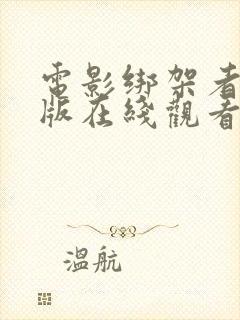 電影綁架者
版在綫觀看
溫航